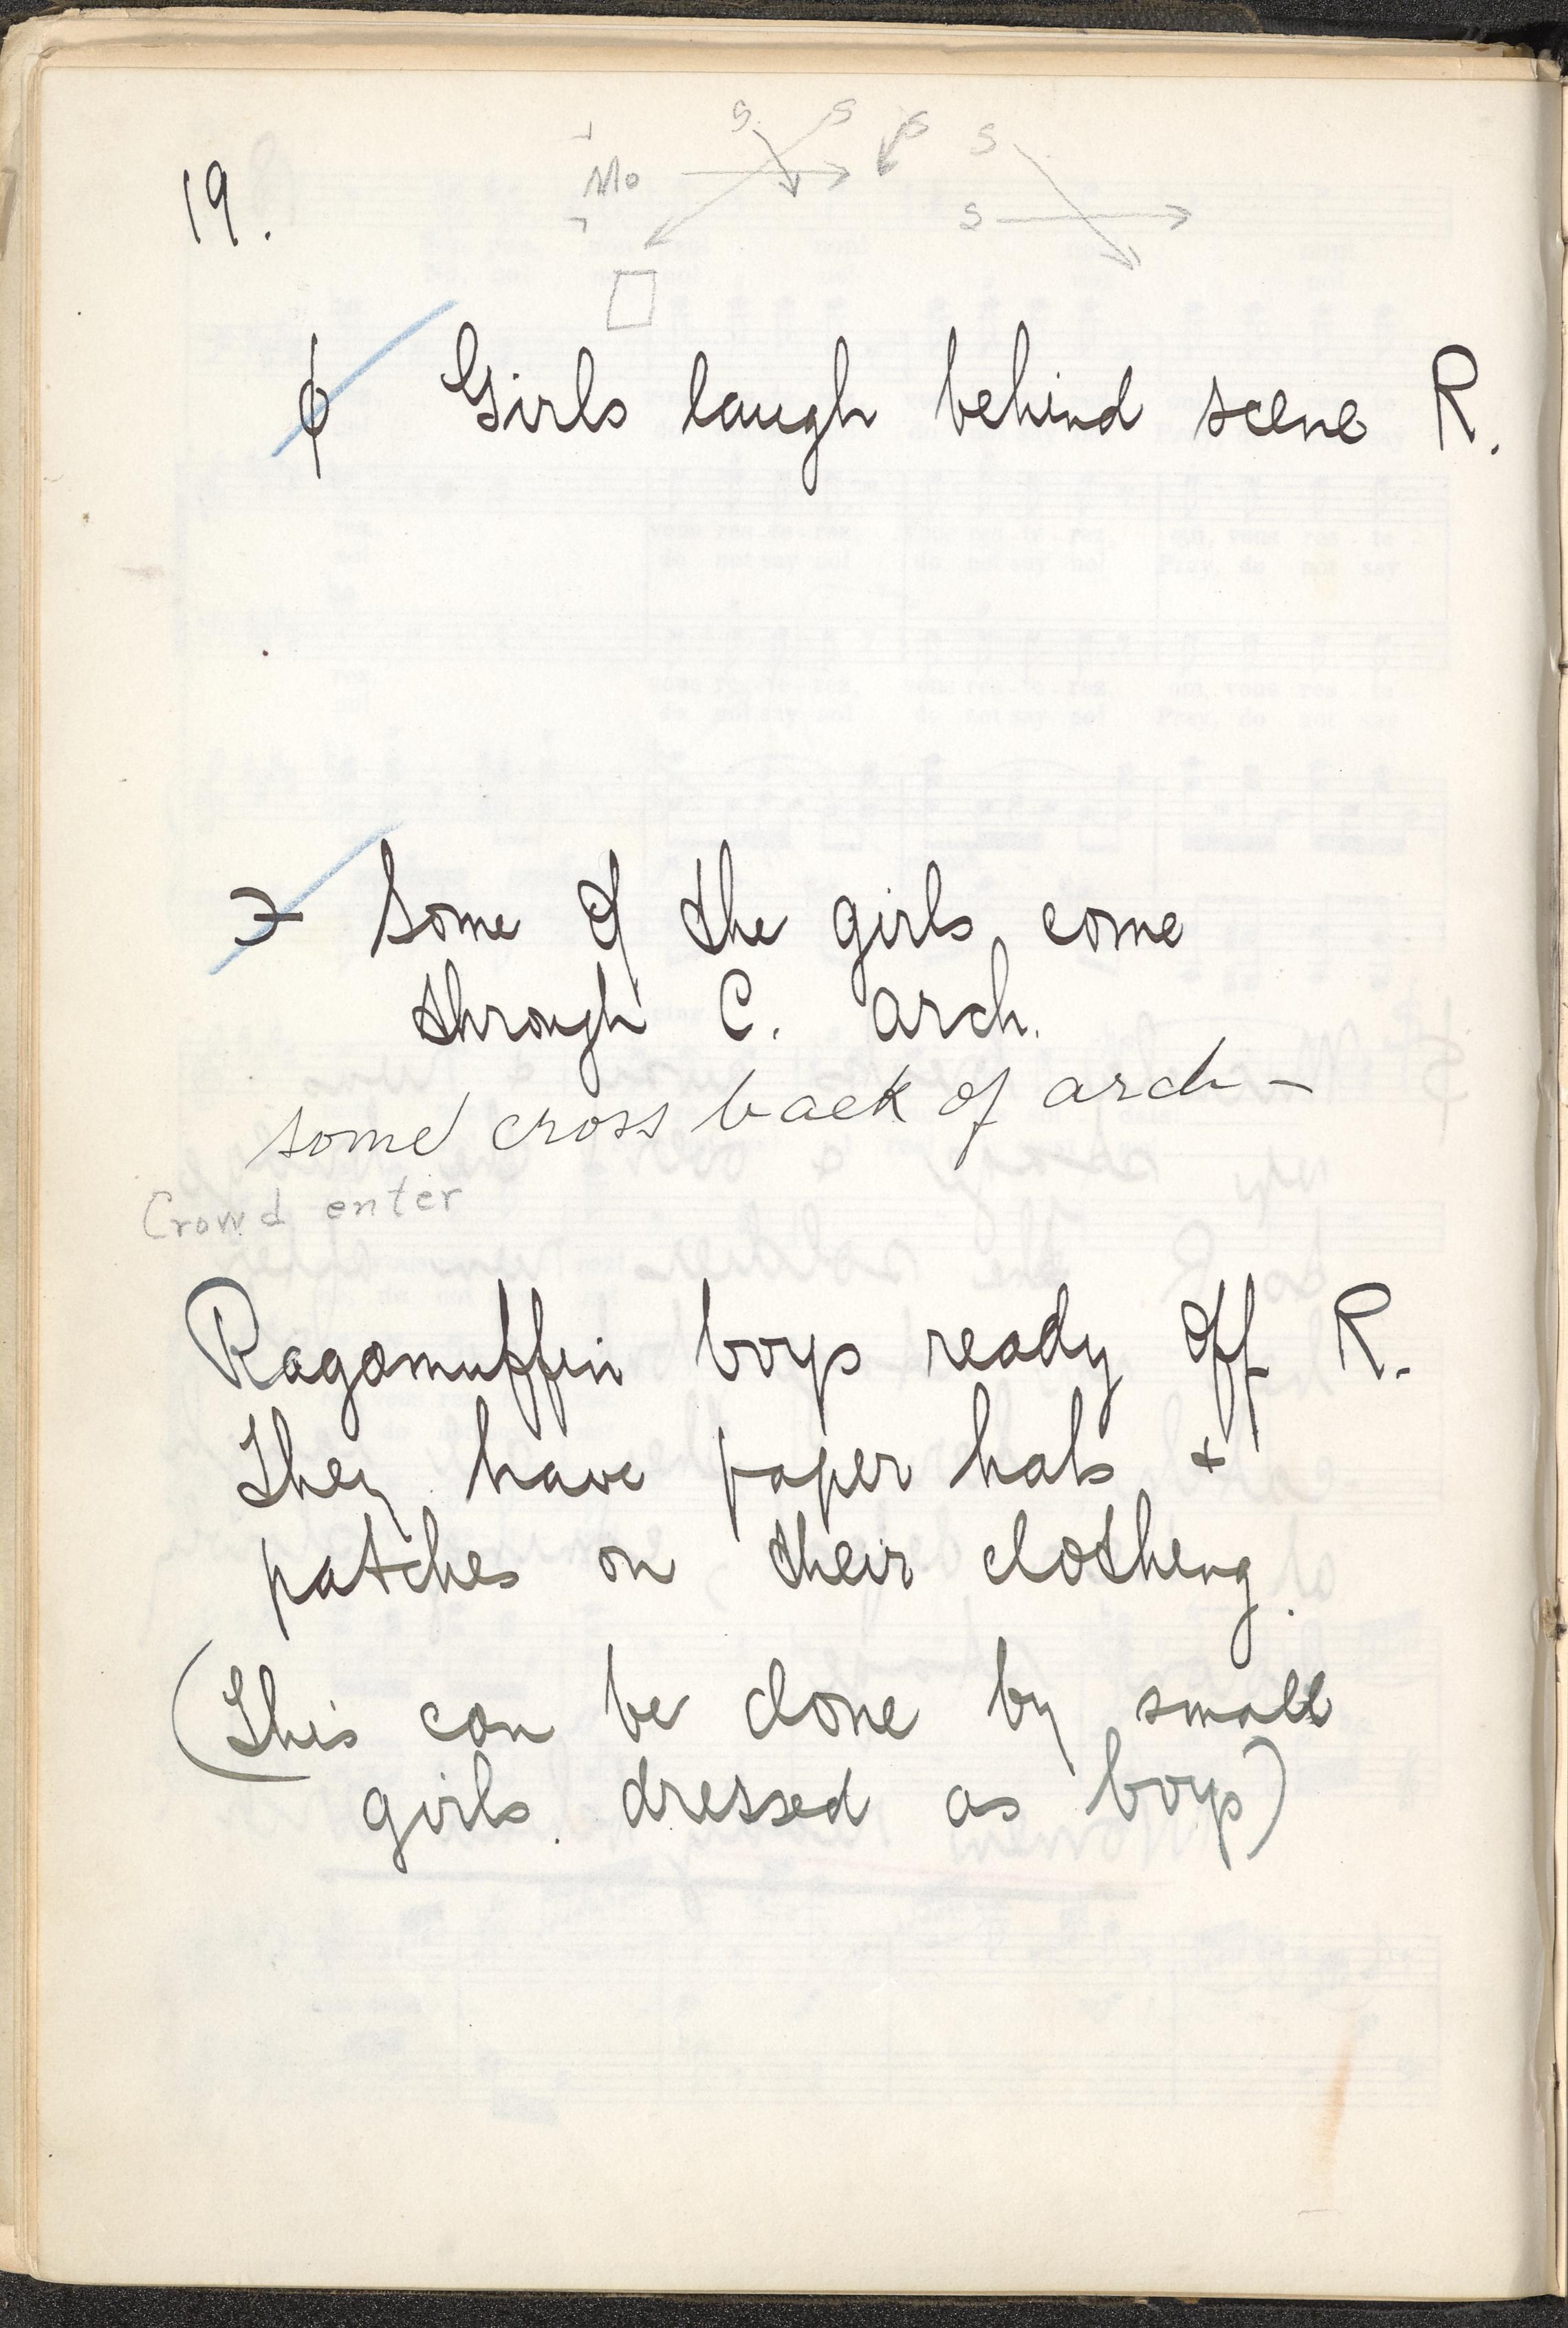 S S S S
Mo
S
19.
ϕ Girls laugh behind scene R.
Some of the girls come
through C. arch.
some cross back of arch –
Crowd enter
Ragamuffin boys ready off R.
They have paper hats +
patches on their clothing.
(This can be done by small
girls dressed as boys)